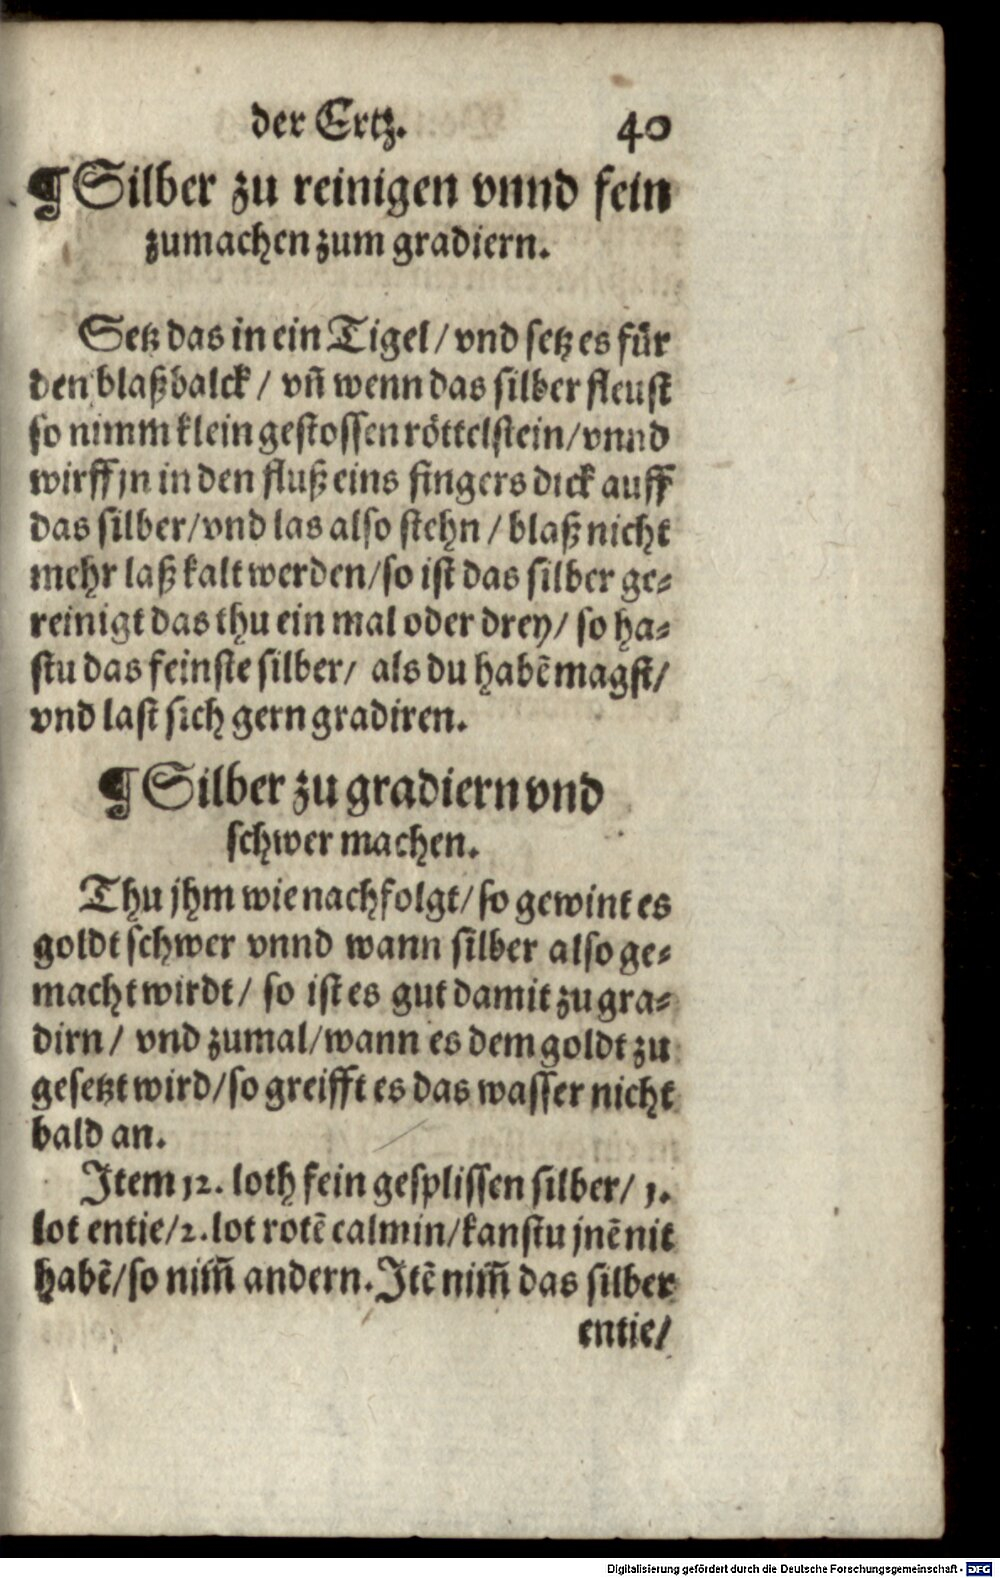 der Ertz. 40
¶ Silber zu reinigen vnnd fein
zumachen zum gradiern.
Setz das in ein Tigel / vnd setz es für
den blaßbalck / vn̄ wenn das silber fleust
so nimm klein gestossen röttelstein / vnnd
wirff jn in den fluß eins fingers dick auff
das silber / vnd las also stehn / blaß nicht
mehr laß kalt werden / so ist das silber ge⸗
reinigt das thu ein mal oder drey / so ha⸗
stu das feinste silber / als du habẽ magst /
vnd last sich gern gradiren.
¶ Silber zu gradiern vnd
schwer machen.
Thu jhm wie nachfolgt / so gewint es
goldt schwer vnnd wann silber also ge⸗
macht wirdt / so ist es gut damit zu gra⸗
dirn / vnd zumal / wann es dem goldt zu
gesetzt wird / so greifft es das wasser nicht
bald an.
Item 12. loth fein gesplissen silber / 1.
lot entie / 2. lot rotẽ calmin / kanstu jnẽ nit
habẽ / so nim̄ andern. Itẽ nim̄ das silber
entie /
Digitalisierung gefördert durch die Deutsche Forschungsgemeinschaft - DFG